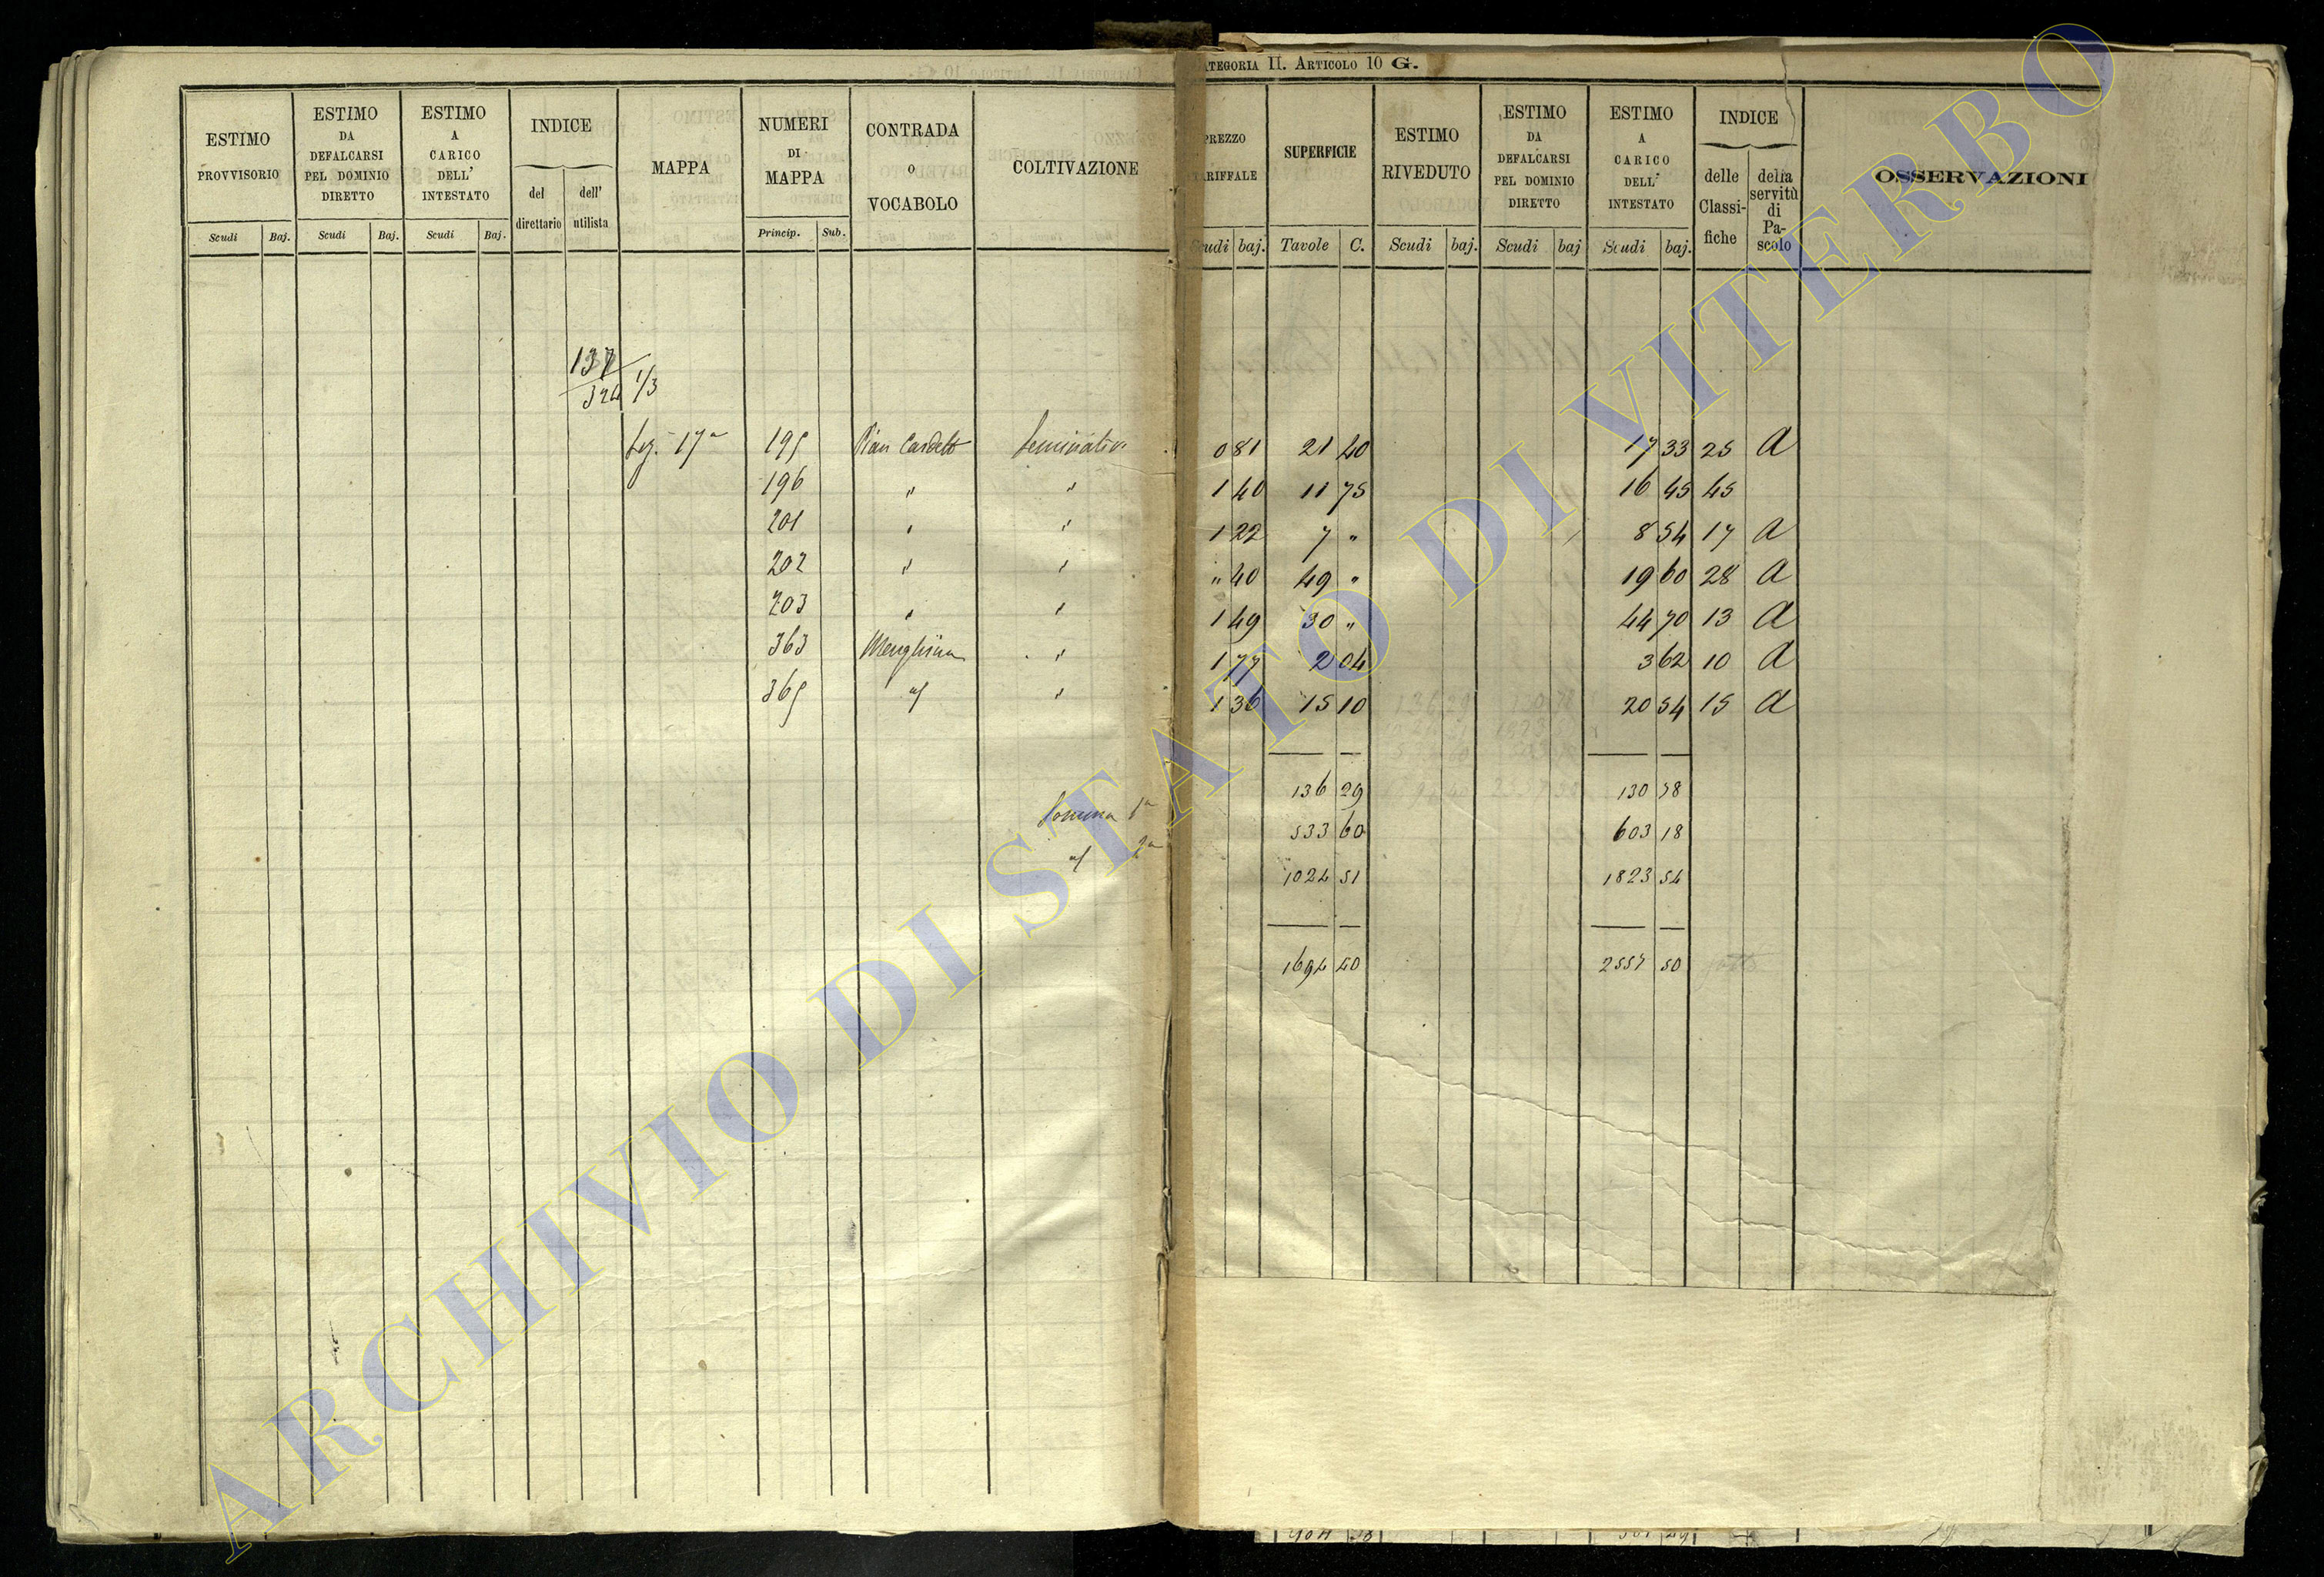 CATEGORIA II. ARTICOLO 10 G.
ESTIMO PROVVISORIO Scudi Baj.
ESTIMO DA DEFALCARSI PEL DOMINIO DIRETTO Scudi Baj.
ESTIMO A CARICO DELL' INTESTATO Scudi Baj.
INDICE del direttario dell' utilista
MAPPA
NUMERI DI MAPPA Princip. Sub.
CONTRADA O VOCABOLO
COLTIVAZIONE
PREZZO TARIFFALE Scudi baj.
SUPERFICIE Tavole C.
ESTIMO RIVEDUTO Scudi baj.
ESTIMO DA DEFALCARSI PEL DOMINIO DIRETTO Scudi baj
ESTIMO A CARICO DELL' INTESTATO Scudi baj.
INDICE delle Classi- fiche della servitù di Pa- scolo
OSSERVAZIONI
137
324 1/3
Sez. 17a 195 Pian Cardeto Seminativo 0 81 21 40 17 33 25 A
196 " " 1 40 11 75 16 45 45
201 " " 1 22 7 " 8 54 17 A
202 " " " 40 49 " 19 60 28 A
203 " " 1 49 30 " 44 70 13 A
363 Menghina " 1 77 2 04 3 62 10 A
365 " 1 36 15 10 20 54 15 A
136 29 130 78
Somma 1a 533 60 603 18
2a 1024 51 1823 54
1694 40 2557 50
ARCHIVIO DI STATO DI VITERBO